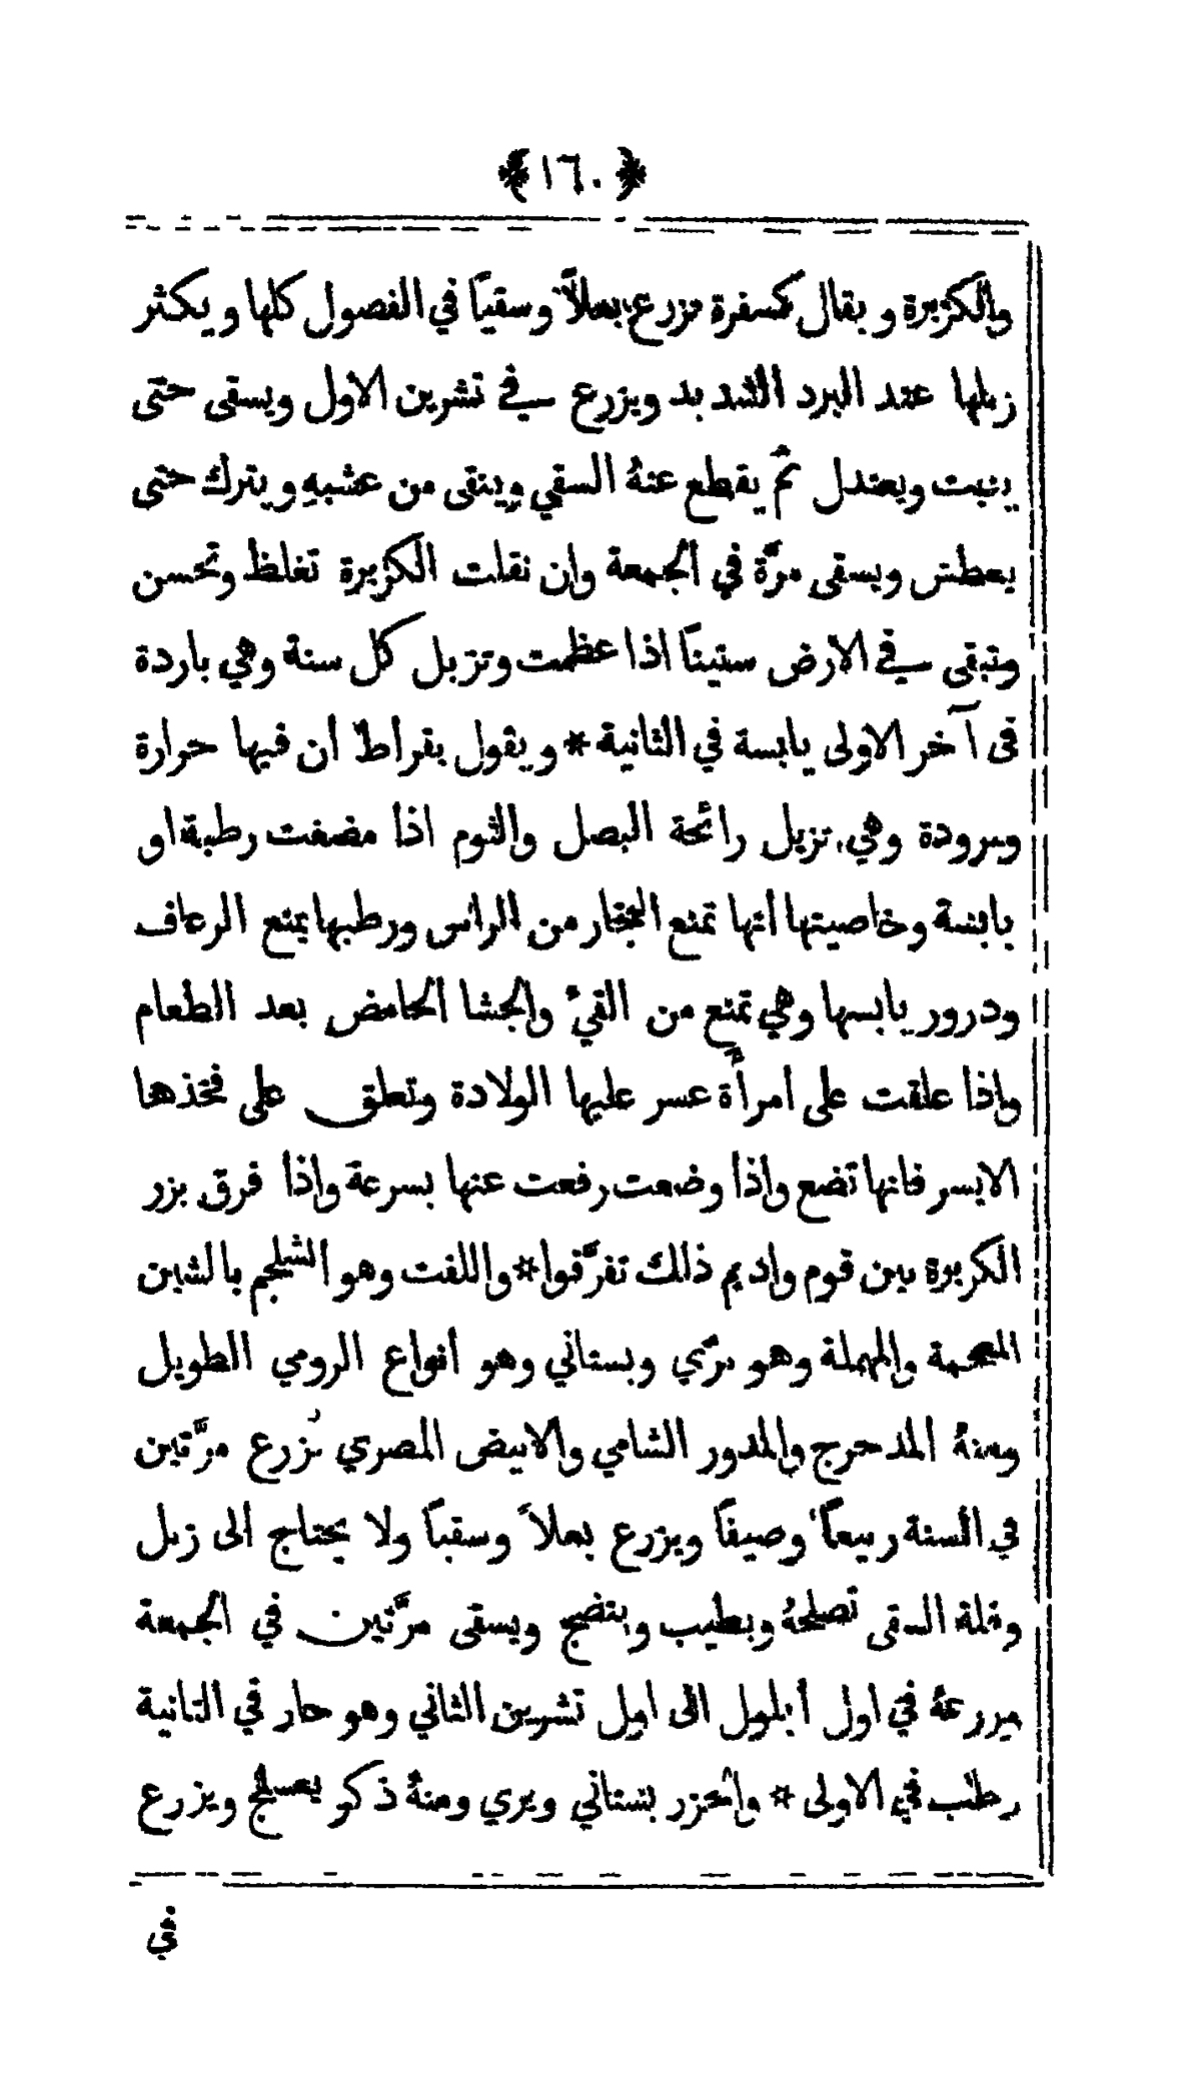 ﴿١٦٠﴾
والكزبرة ويقال كسفرة تزرع بعلاً وسقياً في الفصول كلها ويكثر
زبلها عند البرد الشديد ويزرع في تشرين الاول ويسقى حتى
ينبت ويعتدل ثم يقطع عنهُ السقي وينقى من عشبهِ ويترك حتى
يعطش ويسقى مرَّة في الجمعة وان نقلت الكزبرة تغلظ وتحسن
وتبقى في الارض ستيناً اذا عظمت وتزبل كل سنة وهي باردة
في آخر الاولى يابسة في الثانية * ويقول بقراط أن فيها حرارة
وبرودة وهي تزيل رائحة البصل والثوم اذا مضغت رطبة او
يابسة وخاصيتها أنها تمنع البخار من الراس ورطبها يمنع الرعاف
ودرور يابسها وهي تمنع من القيء والجشا الحامض بعد الطعام
واذا علقت على امرأة عسر عليها الولادة وتعلق على فخذها
الايسر فانها تضع واذا وضعت رفعت عنها بسرعة واذا فرق بزر
الكزبرة بين قوم واديم ذلك تفرَّقوا * واللفت وهو الشلجم بالشين
المعجمة والمهملة وهو برّي وبستاني وهو أنواع الرومي الطويل
ومنهُ المدحرج والمدور الشامي والابيض المصري تُزرع مرَّتين
في السنة ربيعاً وصيفاً ويزرع بعلاً وسقياً ولا يحتاج الى زبل
وقلة السقى تصلحهُ ويطيب وينضج ويسقى مرَّتين في الجمعة
ويزرعهُ في اول أيلول الى اول تشرين الثاني وهو حار في الثانية
رطب في الاولى * والجزر بستاني وبري ومنهُ ذكر يعسلج ويزرع
في